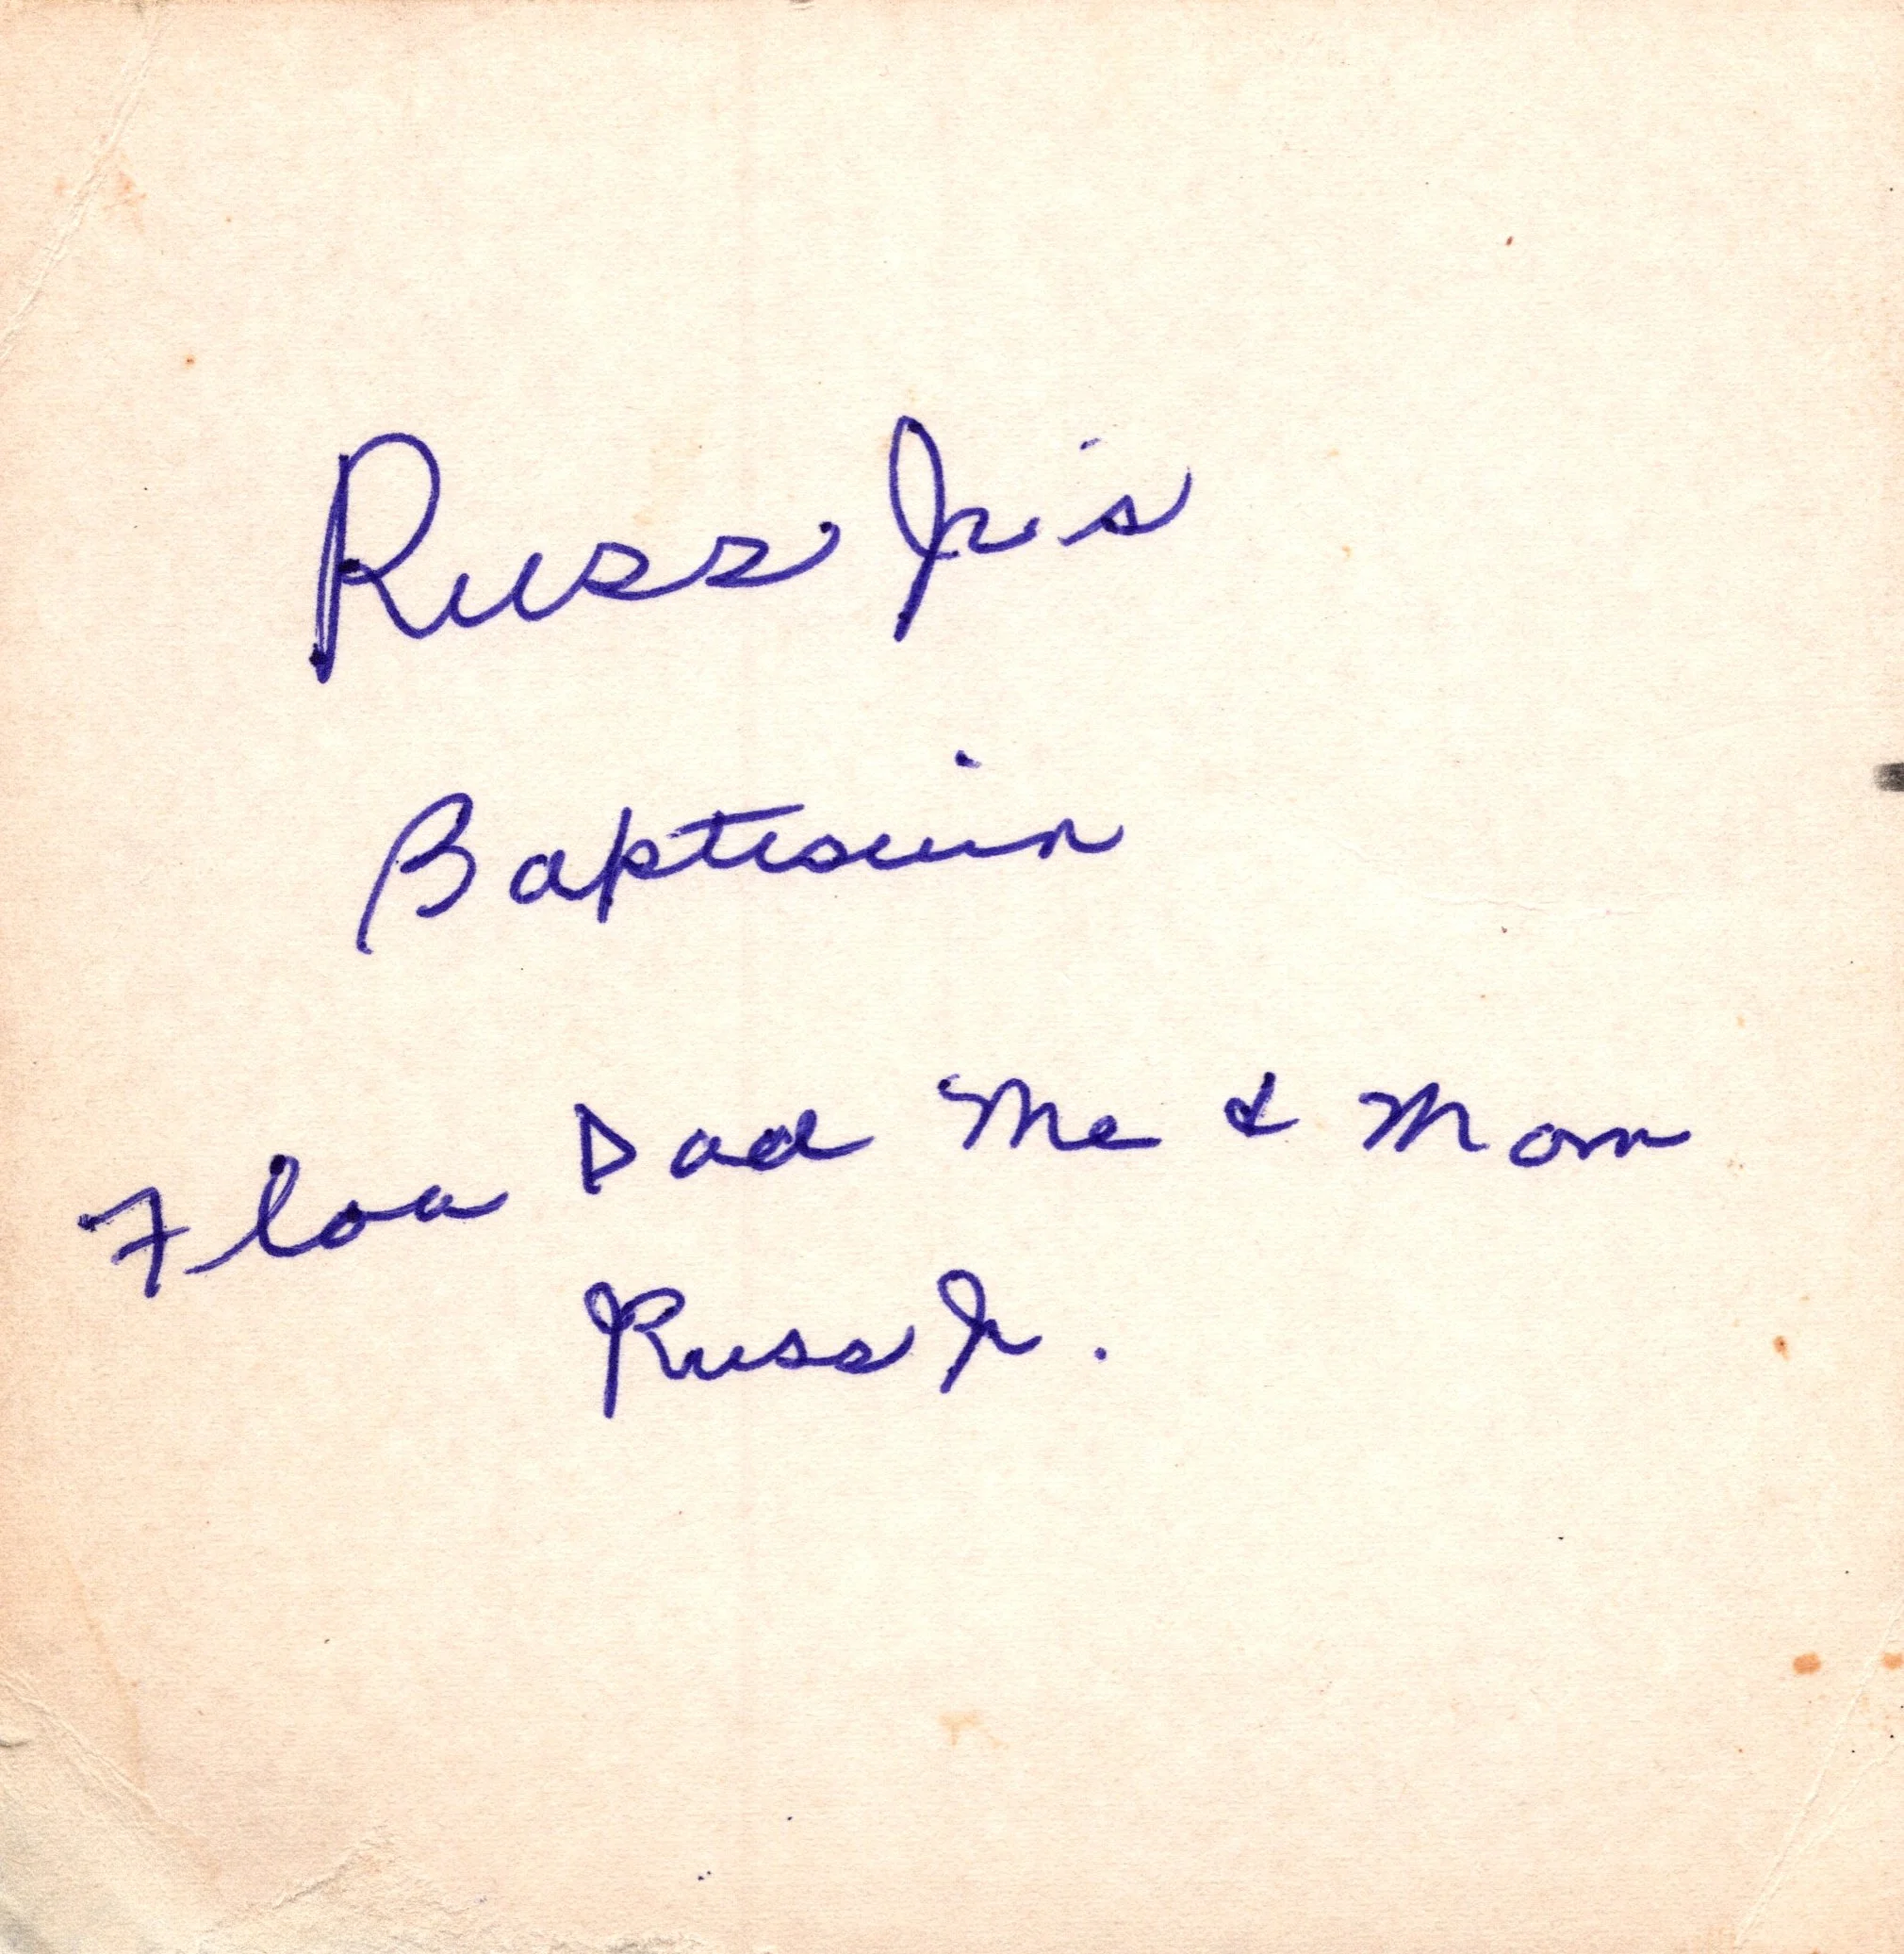 Russ Jr's
Baptisim
Floa Dad Me & Mom
Russ Jr.